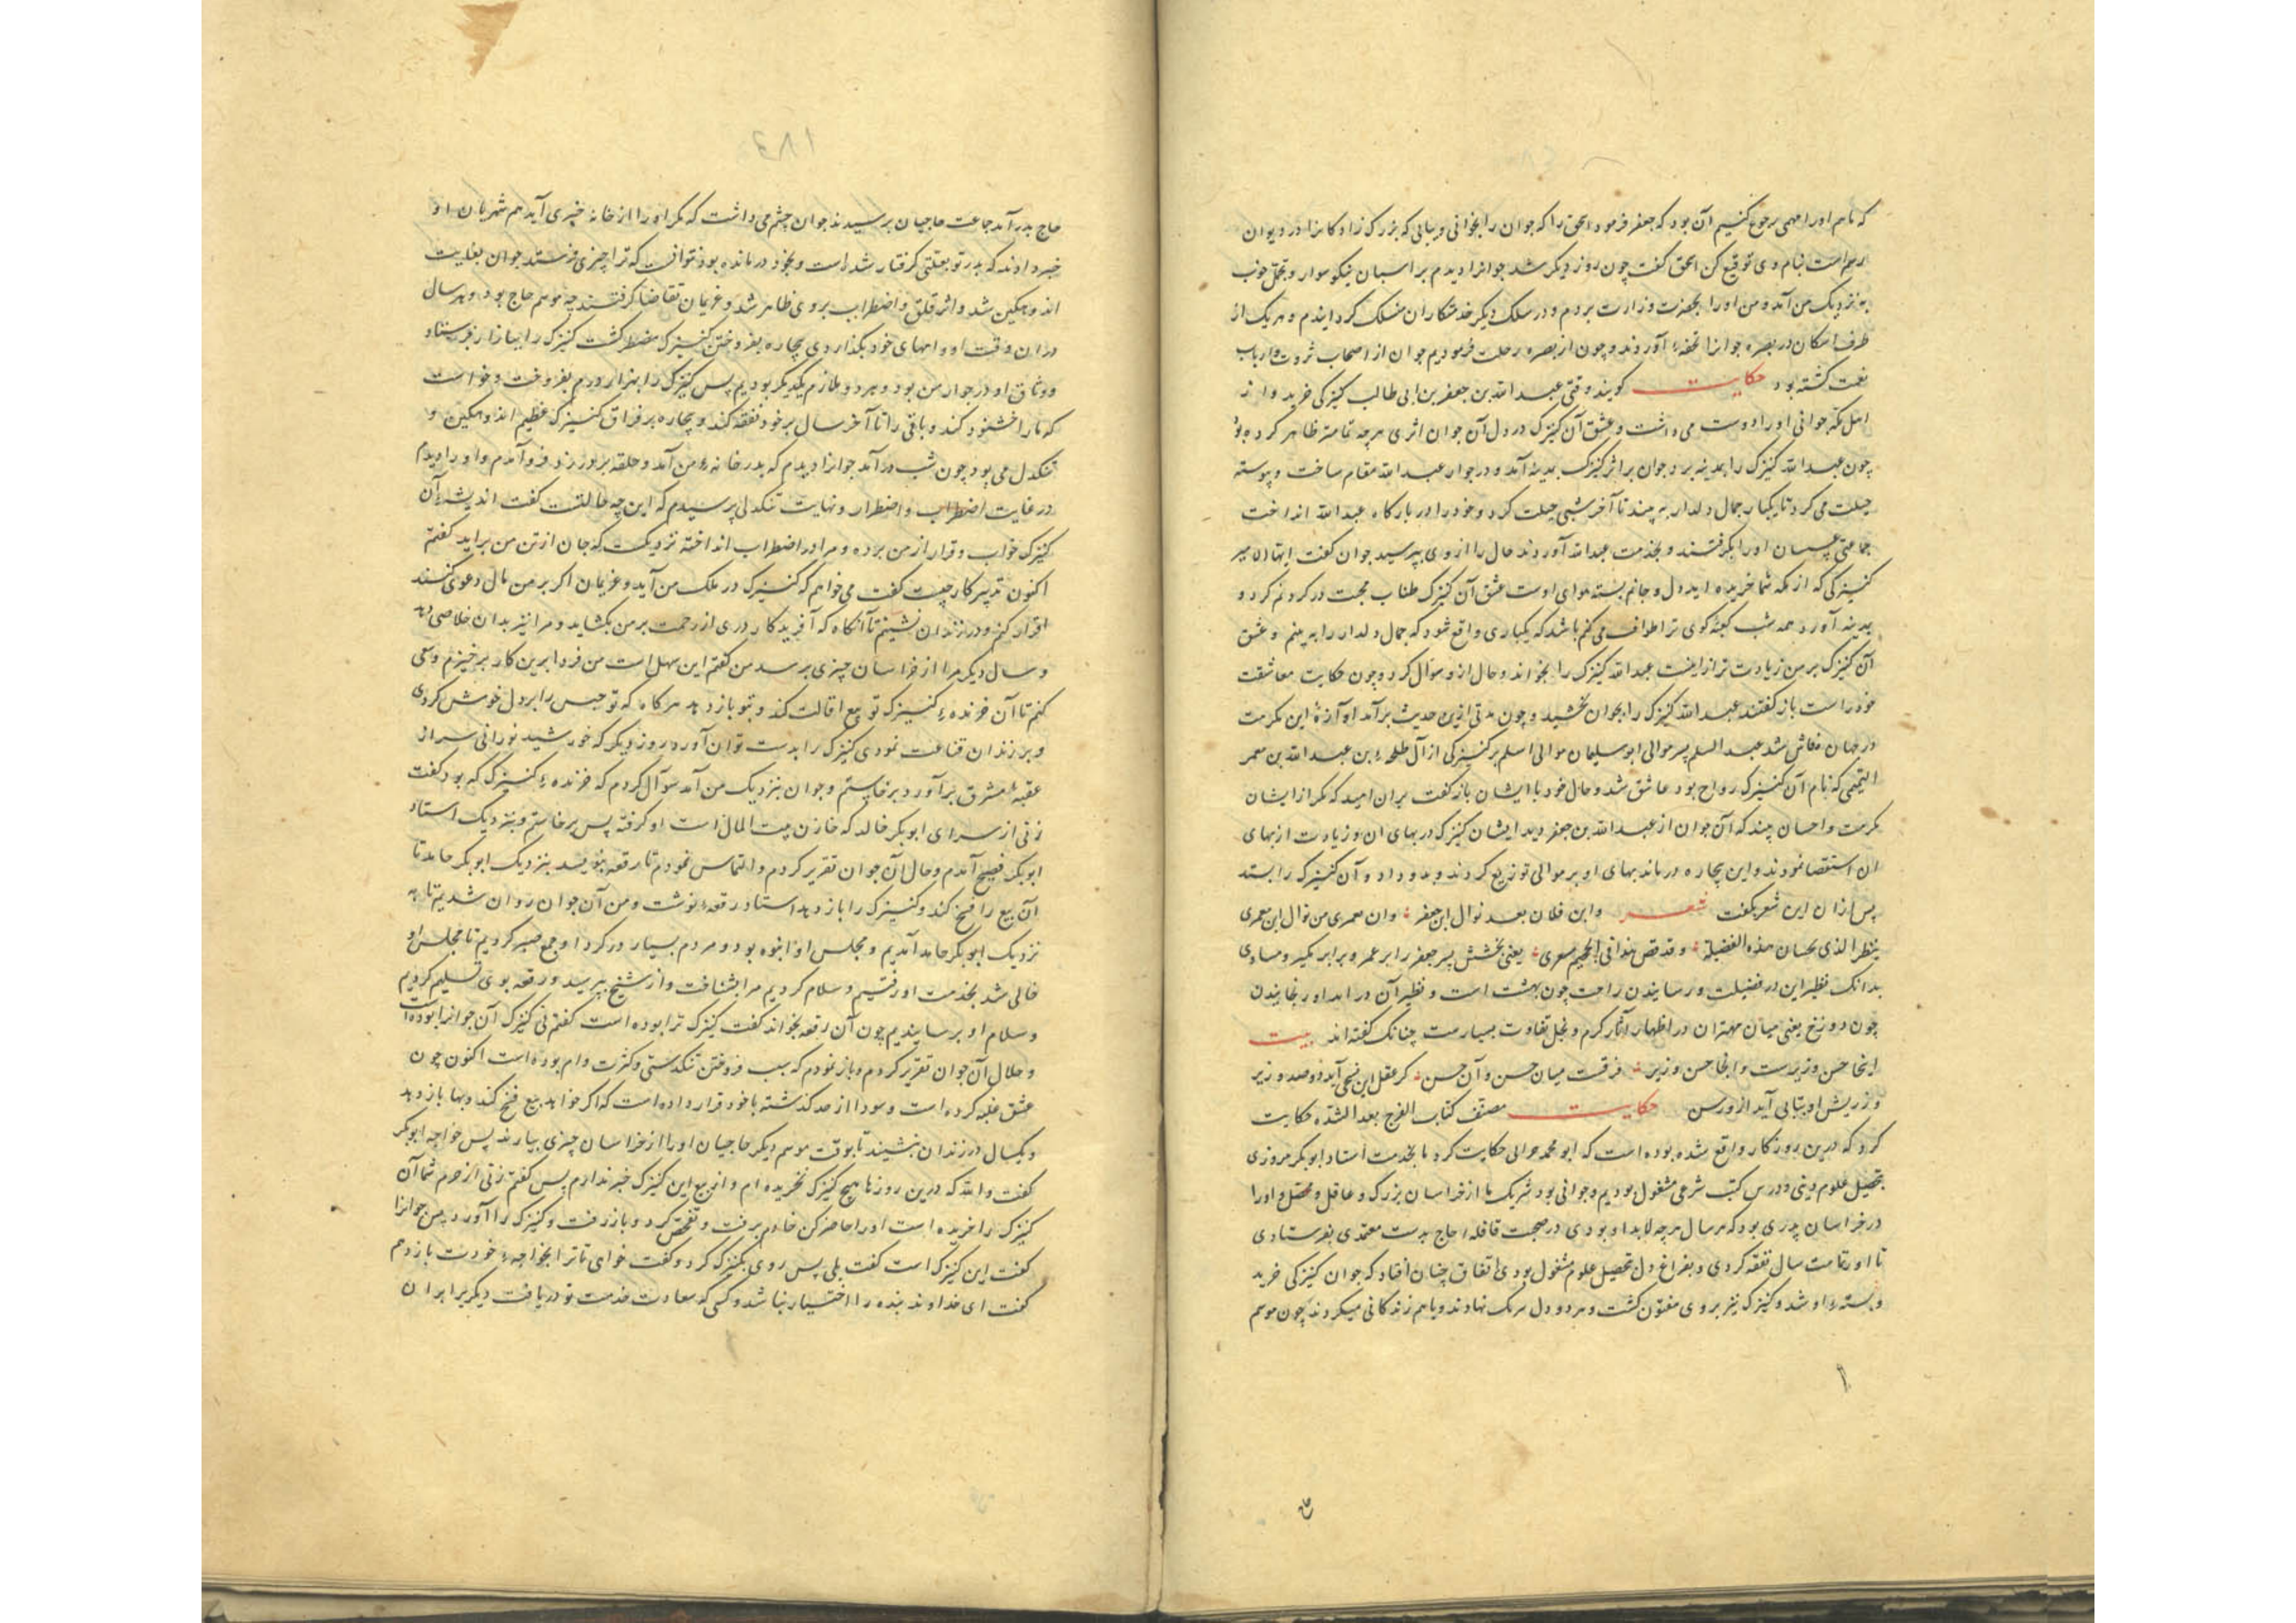 که نام او را مهمی رجوع کنیم آن بود که جعفر فرمود اسحق را که جوان را بخوانی و بیابی که بزرک زاد کانرا در دیوان
رسم است بنام وی توقیع کن اسحق گفت چون روز دیکر شد جوانرا دیدم بر اسبان نیکو سوار و تجمل خوب
به نزدیک من آمد و من او را بحضرت وزارت بردم و در سلک دیکر خدمتکاران منسلک کردانیدم و هر یک از
طرف امکان در بصره جوانرا تحفهٔ آوردند و چون از بصره رحلت فرمودیم جوان از اصحاب ثروت و ارباب
نعمت کشته بود حکایت کویند وقتی عبد الله بن جعفر بن ابی طالب کنیزکی خرید و از
اهل مکه جوانی او را دوست می داشت و عشق آن کنیزک در دل آن جوان اثری هر چه تمامتر ظاهر کرده بود
چون عبد الله کنیزک را بمدینه برد جوان بر اثر کنیزک بمدینه آمد و در جوار عبد الله مقام ساخت و پیوسته
حیلت می کرد تا یکبار جمال دلدار به بیند تا آخر شبی حیلت کرد و خود را در بارکاه عبد الله انداخت
جماعتی او را بکرفتند و بخدمت عبد الله آوردند حال را از وی بپرسید جوان کفت ایها الامیر
کنیزکی که از مکه شما خریده اید دل و جانم بسته هوای اوست عشق آن کنیزک طناب محبت در کردنم کرد و
بمدینه آورد همه شب کعبهٔ کوی ترا طواف می کنم باشد که یکباری واقع شود که جمال دلدار را به بینم و عشق
آن کنیزک بر من زیادت تر از اینست عبد الله کنیزک را بخواند و حال ازو سؤال کرد و چون حکایت معاشقت
خود راست باز کفتند عبد الله کنیزک را بجوان بخشید و چون مدتی ازین حدیث برآمد آوازهٔ این مکرمت
در جهان فاش شد عبد السلم پسر موالی ابو سلیمان موالی اسلم بر کنیزکی از آل طلحهٔ بن عبد الله بن معمر
التیمی که نام آن کنیزک رواح بود عاشق شد و حال خود با ایشان باز کفت بران امید که مکر از ایشان
مکرمت و احسان بیند که آن جوان از عبد الله بن جعفر دید ایشان کنیزک در بهای ان و زیادت از بهای
ان استقصا نمودند و این بیچاره درماند بهای او بر موالی توزیع کردند و بدو داد و آن کنیزک را بستد
پس ازان این شعر بکفت شعر واین فلان بعد نوال ابن جعفر وان معمری من نوال ابن معمری
ینظر الذی بحسان هذه الفضیلة وقد قص هذا فی الجحیم یعنی بخشش پسر جعفر را بر عمر و برابر مکیر و مساوی
بدانک نظیر این در فضیلت و رسانیدن راحت چون بهشت است و نظیر آن در ایذا و رنجانیدن
چون دوزخ یعنی میان مهتران در اظهار آثار کرم و بخل تفاوت بسیارست چنانک کفته اند بیت
اینجا حسن وزیرست و انجا حسن وزیر فرقست میان حسن و آن حسن کر عقل این آید دو صد وزیر
وز ریش او آید از و رسن حکایت مصنف کتاب الفرج بعد الشدة حکایت
کرد که درین روزکار واقع شده بوده است که ابو محمد حکایت کرد ما بخدمت استاد ابو بکر مروزی
بتحصیل علوم دینی و درس کتب شرعی مشغول بودیم و جوانی بود شریک ما از خراسان بزرک و عاقل و او را
در خراسان پدری بود که هر سال هر چه لابد او بودی در صحبت قافلهٔ حاج بدست معتمدی بفرستادی
تا او تمامت سال نفقه کردی و بفراغ دل بتحصیل علوم مشغول بودی اتفاق چنان افتاد که جوان کنیزکی خرید
و بستهٔ او شد و کنیزک نیز بر وی مفتون کشت و هر دو دل بر یک نهادند و با هم زندکانی میکردند چون موسم
۱۸۴
حاج بدر آمد جماعت حاجیان برسیدند جوان چشم می داشت که مکر او را از خانه خبری آید هم شهریان او
خبر دادند که پدر تو بعلتی کرفتار شد است و بخود درمانده بود نتوانست که ترا چیزی فرستد جوان بغایت
اندوهکین شد و اثر قلق و اضطراب بر وی ظاهر شد و غریمان تقاضا کرفتند چه موسم حاج بود و هر سال
دران وقت او وامهای خود بکذاردی بیچاره بفروختن کنیزک مضطر کشت کنیزک را ببازار فرستاد
و وثاق او در جوار من بود و هر دو ملازم یکدیکر بودیم پس کنیزک را بهزار درم بفروخت و خواست
که غرما را خشنود کند و باقی را تا آخر سال بر خود نفقه کند و بیچاره بر فراق کنیزک عظیم اندوهکین و
تنکدل می بود چون شب درآمد جوانرا دیدم که بدر خانهٔ من آمد و حلقه بر در زد فرو آمدم و او را دیدم
در غایت اضطراب و اضطرار و نهایت تنکدلی پرسیدم که این چه حالتست کفت اندیشهٔ آن
کنیزک خواب و قرار از من برده و مرا در اضطراب انداخته نزدیکست که جان از تن من براید کفتم
اکنون تدبیر کار چیست کفت می خواهم که کنیزک در ملک من آید و غریمان اکر بر من مال دعوی کنند
اقرار کنم و در زندان نشینم تا آنکاه که آفریدکار دری از رحمت بر من بکشاید و مرا نیز بدان خلاصی دهد
و سال دیکر مرا از خراسان چیزی برسد من کفتم این سهل است من فردا برین کار برخیزم و سعی
کنم تا آن خرندهٔ کنیزک تو بیع اقالت کند و بتو باز دهد هر کاه که تو حبس را بر دل خوش کردی
و بر زندان قناعت نمودی کنیزک را بدست توان آورد روز دیکر که خورشید نورانی سر از
عقبهٔ مشرق برآورد برخاستم و جوان بنزدیک من آمد سؤال کردم که خرندهٔ کنیزک که بود کفت
زنی از سرای ابو بکر خالد که خازن بیت المال است او کرفته پس برخاستم و بنزدیک استاد
ابو بکر فصیح آمدم و حال آن جوان تقریر کردم و التماس نمودم تا رقعه بنویسد بنزدیک ابو بکر حامد تا
آن بیع را فسخ کند و کنیزک را باز دهد استاد رقعهٔ نوشت و من آن جوان روان شدیم تا به
نزدیک ابو بکر حامد آمدیم و مجلس او انبوه بود و مردم بسیار در کرد او جمع صبر کردیم تا مجلس او
خالی شد بخدمت او رفتیم و سلام کردیم مرا بشناخت و از شیخ بپرسید و رقعه بوی تسلیم کردیم
و سلام او برسانیدیم چون آن رقعه بخواند کفت کنیزک ترا بوده است کفتم نی کنیزک آن جوانرا بوده است
و حال آن جوان تقریر کردم و باز نمودم که سبب فروختن تنکدستی و کثرت وام بوده است اکنون چون
عشق غلبه کرده است و سودا از حد کذشته با خود قرار داده است که اکر خواجه بیع فسخ کند و بها باز دهد
و یکسال در زندان بنشیند تا بوقت موسم دیکر حاجیان او را از خراسان چیزی بیارند پس خواجه ابو بکر
کفت والله که درین روزها هیچ کنیزک نخریده ام و از بیع این کنیزک خبر ندارم پس کفتم زنی از حرم شما آن
کنیزک را خریده است او را حاضر کن خادم برفت و تفحص کرد و باز رفت و کنیزک را آورد پس جوانرا
کفت این کنیزک است کفت بلی پس روی بکنیزک کرد و کفت خواهی تا ترا بخواجهٔ خودت باز دهم
کفت ای خداوند بنده را اختیار نباشد و کسی که سعادت خدمت تو دریافت دیکر برابر ان